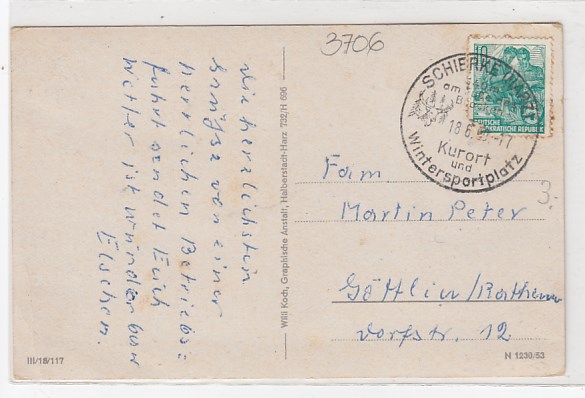 die herzlichsten
Grüße von einer
herrlichen Betriebs=
fahrt sendet Euch
Wetter ist wunderbar
Elschen.
Willi Koch, Graphische Anstalt, Halberstadt-Harz 732/H 696
3706
10
DEUTSCHE
DEMOKRATISCHE REPUBLIK
SCHIERKE
am
18.6.
-17
Kurort
und
Wintersportplatz
3.-
Fam.
Martin Peter
Göttlin/Rathenow
Dorfstr. 12
III/18/117
N 1230/53